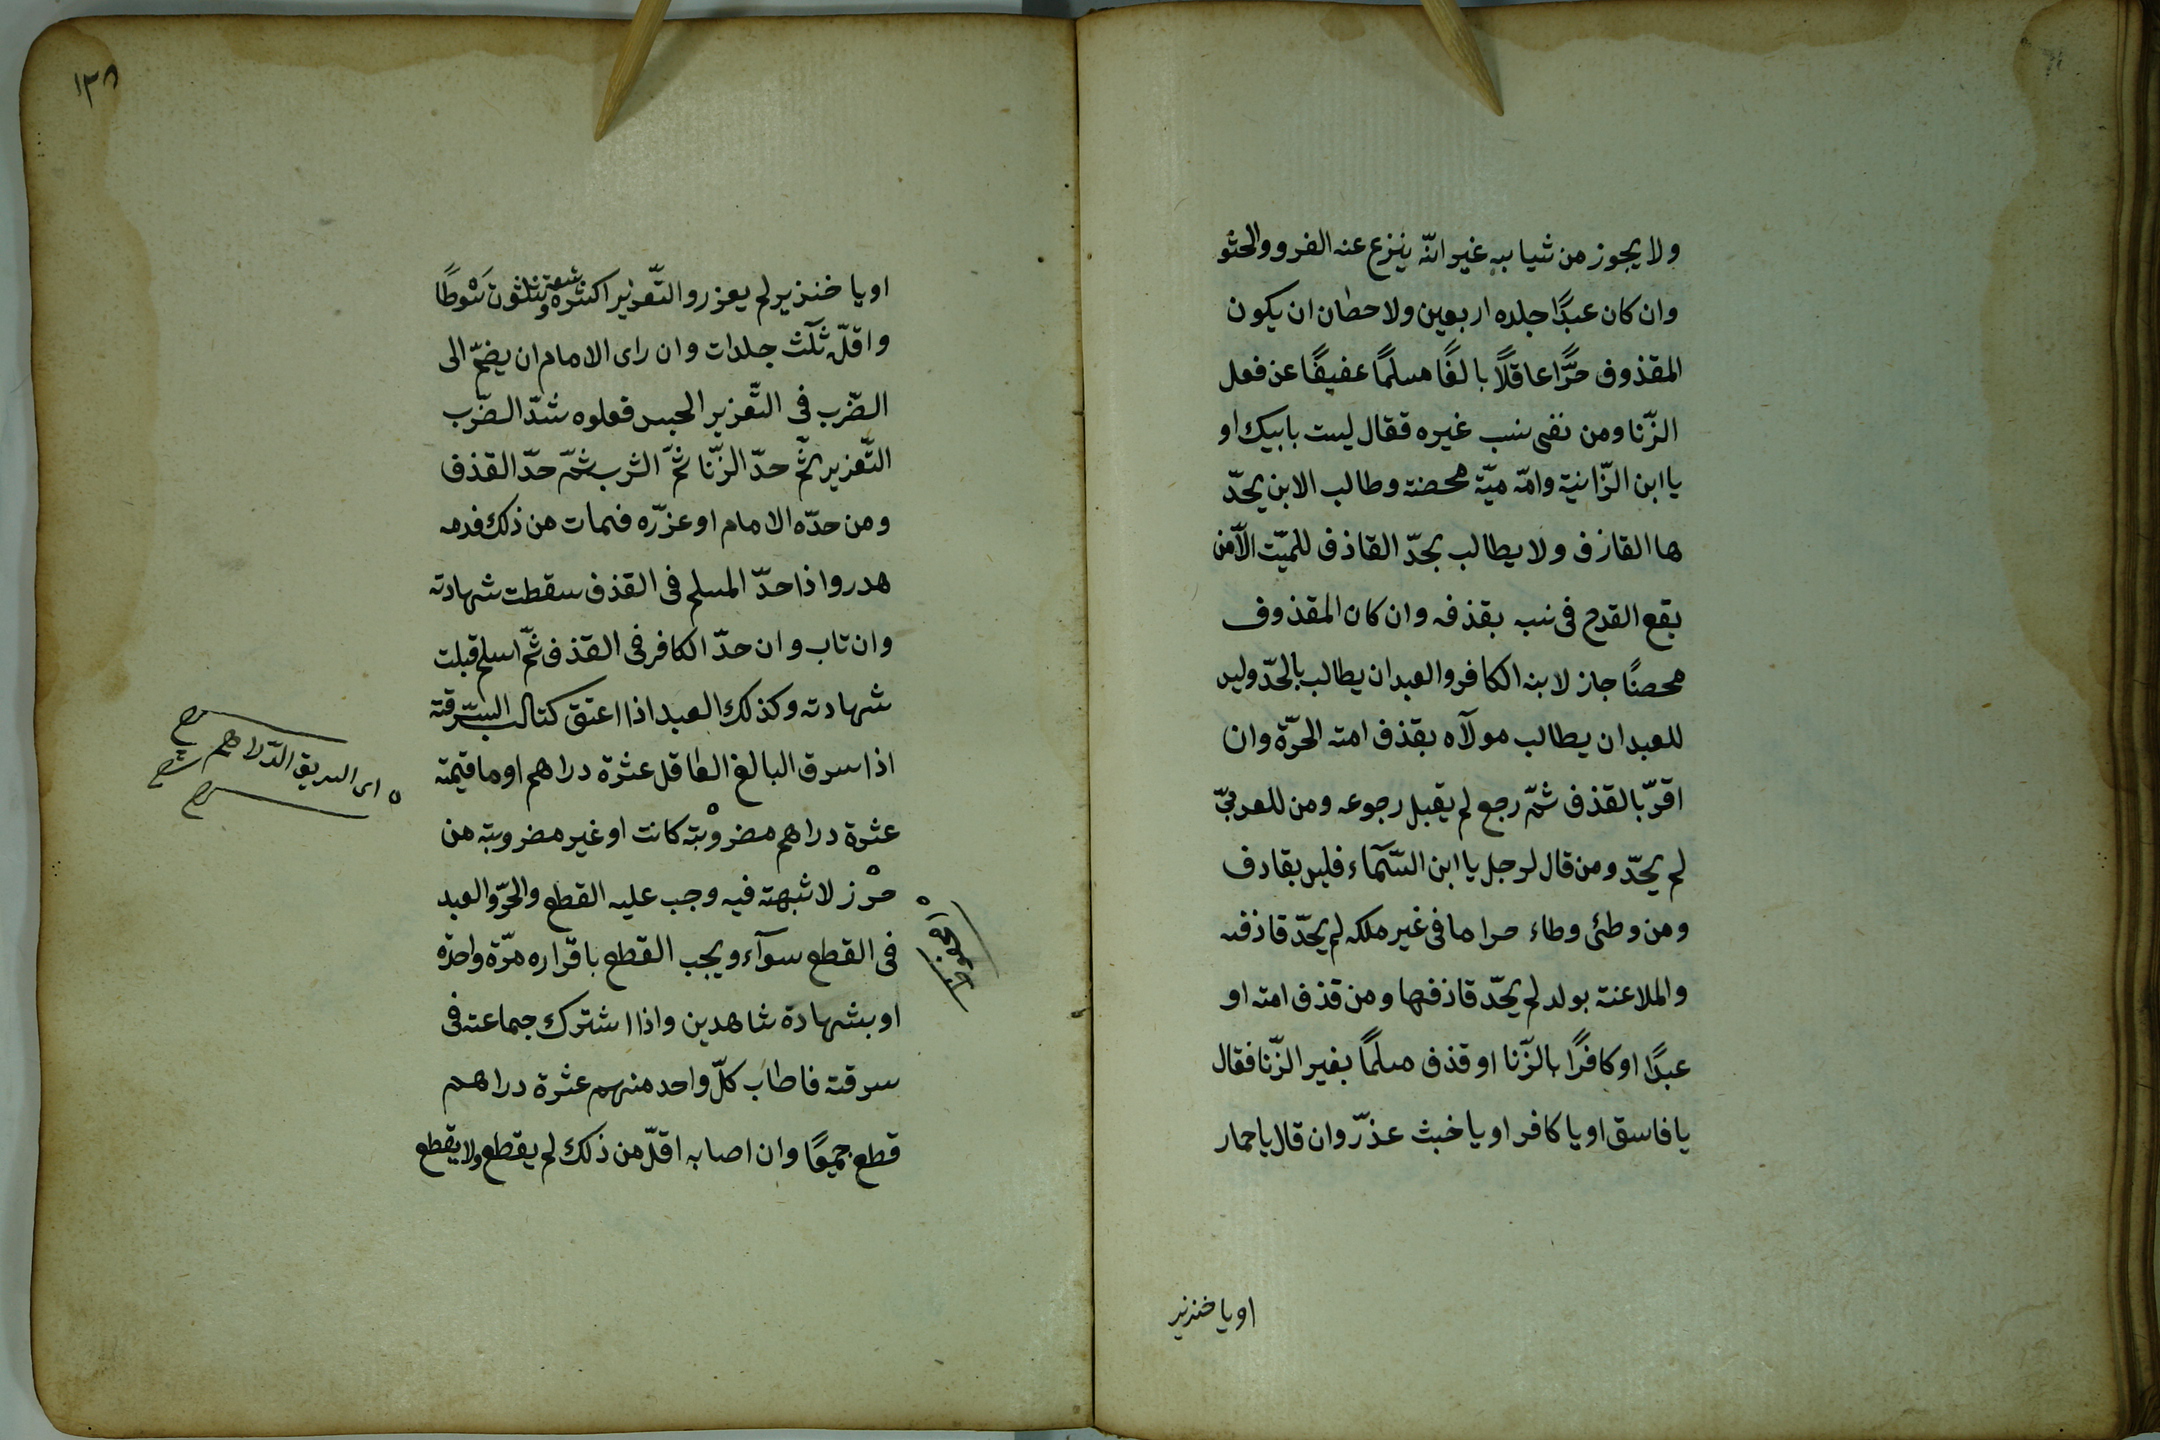 ولا يجوز من ثيابه غير انّه ينزع عنه الفرو والحثو
وان كان عبدًا جلده اربعين ولاحطان ان يكون
المقذوف حرًّا عاقلًا بالغًا مسلمًا عفيفًا عن فعل
الزّنا ومن نفى نسب غيره فقال ليست بابيك او
يا ابن الزّانية وامّه ميّة محصنة وطالب الابن يحدّ
ها القازف ولا يطالب بحدّ القاذف للميّت الّآ من
بقع القدح فى نسبه بقذفه وان كان المقذوف
محصنًا جاز لابنه الكافر والعبد ان يطالب بالحدّ وليس
للعبد ان يطالب مولآه بقذف امته الحرّة وان
اقرّ بالقذف ثمّ رجع لم يقبل رجوعه ومن للعربىّ
لم يحدّ ومن قال لرجل يا ابن السّمآء فليس بقادف
ومن وطئى وطاء حراما فى غير ملكه لم يحدّ قاذفه
والملاعنة بولد لم يحدّ قاذفها ومن قذف امته او
عبدًا او كافرًا بالزّنا او قذف مسلمًا بغير الزّنا فقال
يا فاسق او يا كافر او يا خبث عذّر وان قال يا حمار
او يا خنزير
١٣٨
او يا خنزير لم يعزر والتّعزير اكثره تسعة وثلثون سَوْطًا
واقلّه ثلٓث جلدات وان راى الامام ان يضمّ الى
الضّرب فى التّعزير الحبس فعلوه شدّ الضّرب
التّعزير ثمّ حدّ الزّنا ثمّ الشرب ثمّ حدّ القذف
ومن حدّه الامام او عزّره فمات من ذلك فدمه
هدر واذا حدّ المسلم فى القذف سقطت شهادته
وان تاب وان حدّ الكافر فى القذف ثمّ اسلم قبلت
شهادته وكذلك العبد اذا اعتق كتاب السّرقة
اذا سرق البالغ العاقل عشرة دراهم او ما قيمته
عشرة دراهم مضروبة كانت او غير مضروبة من
حرز لا شبهة فيه وجب عليه القطع والحرّ والعبد
فى القطع سوآء ويجب القطع باقراره مرّة واحدة
او بشهادة شاهدين واذا اشترك جماعة فى
سرقة فاطاب كلّ واحد منهم عشرة دراهم
قطع جميعًا وان اصابه اقلّ من ذلك لم يقطع ولا يقطع
اى السريق الدّراهم